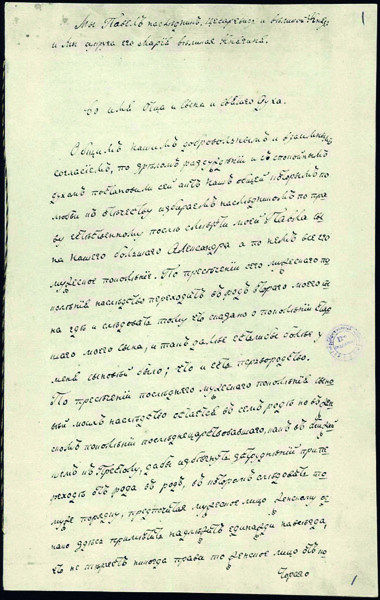 1
Мы Павелъ наслѣдникъ, Цесаревичъ и великой Князь,
и мы супруга его Марія великая Княгиня.
Во имя Отца и Сына и Святаго Духа.
Общимъ нашимъ добровольнымъ и взаимнымъ
согласіемъ, по зрѣломъ разсужденіи и съ спокойнымъ
духомъ постановили сей актъ нашъ общей, которымъ по
любви къ отечеству избираемъ наслѣдникомъ по пра-
ву естественному, послѣ смерти моей Павла сы-
на нашего большаго Александра а по немъ все его
мужеское поколѣніе. По пресеченіи сего мужескаго по-
колѣнія наслѣдство переходитъ въ родъ втораго моего сы-
на гдѣ и слѣдовать тому что сказано о поколѣніи стар-
шаго моего сына, и такъ далѣе естьлибы болѣе у
меня сыновей было; что и есть первородство.
По пресеченіи послѣдняго мужескаго поколѣнія сыно-
вей моихъ наслѣдство остается въ семъ родѣ но въ жен-
скомъ поколѣніи послѣднецарствовавшаго, какъ въ ближай-
шемъ къ престолу, дабы избѣгнуть затрудненій при пе-
реходѣ отъ рода въ родъ, въ которомъ слѣдовать то-
муже порядку, предпочитая мужеское лицо женскому од-
нако здѣсь примѣтить надлежитъ единожды навсегда,
что не теряетъ никогда права то женское лицо отъ ко-
тораго
1